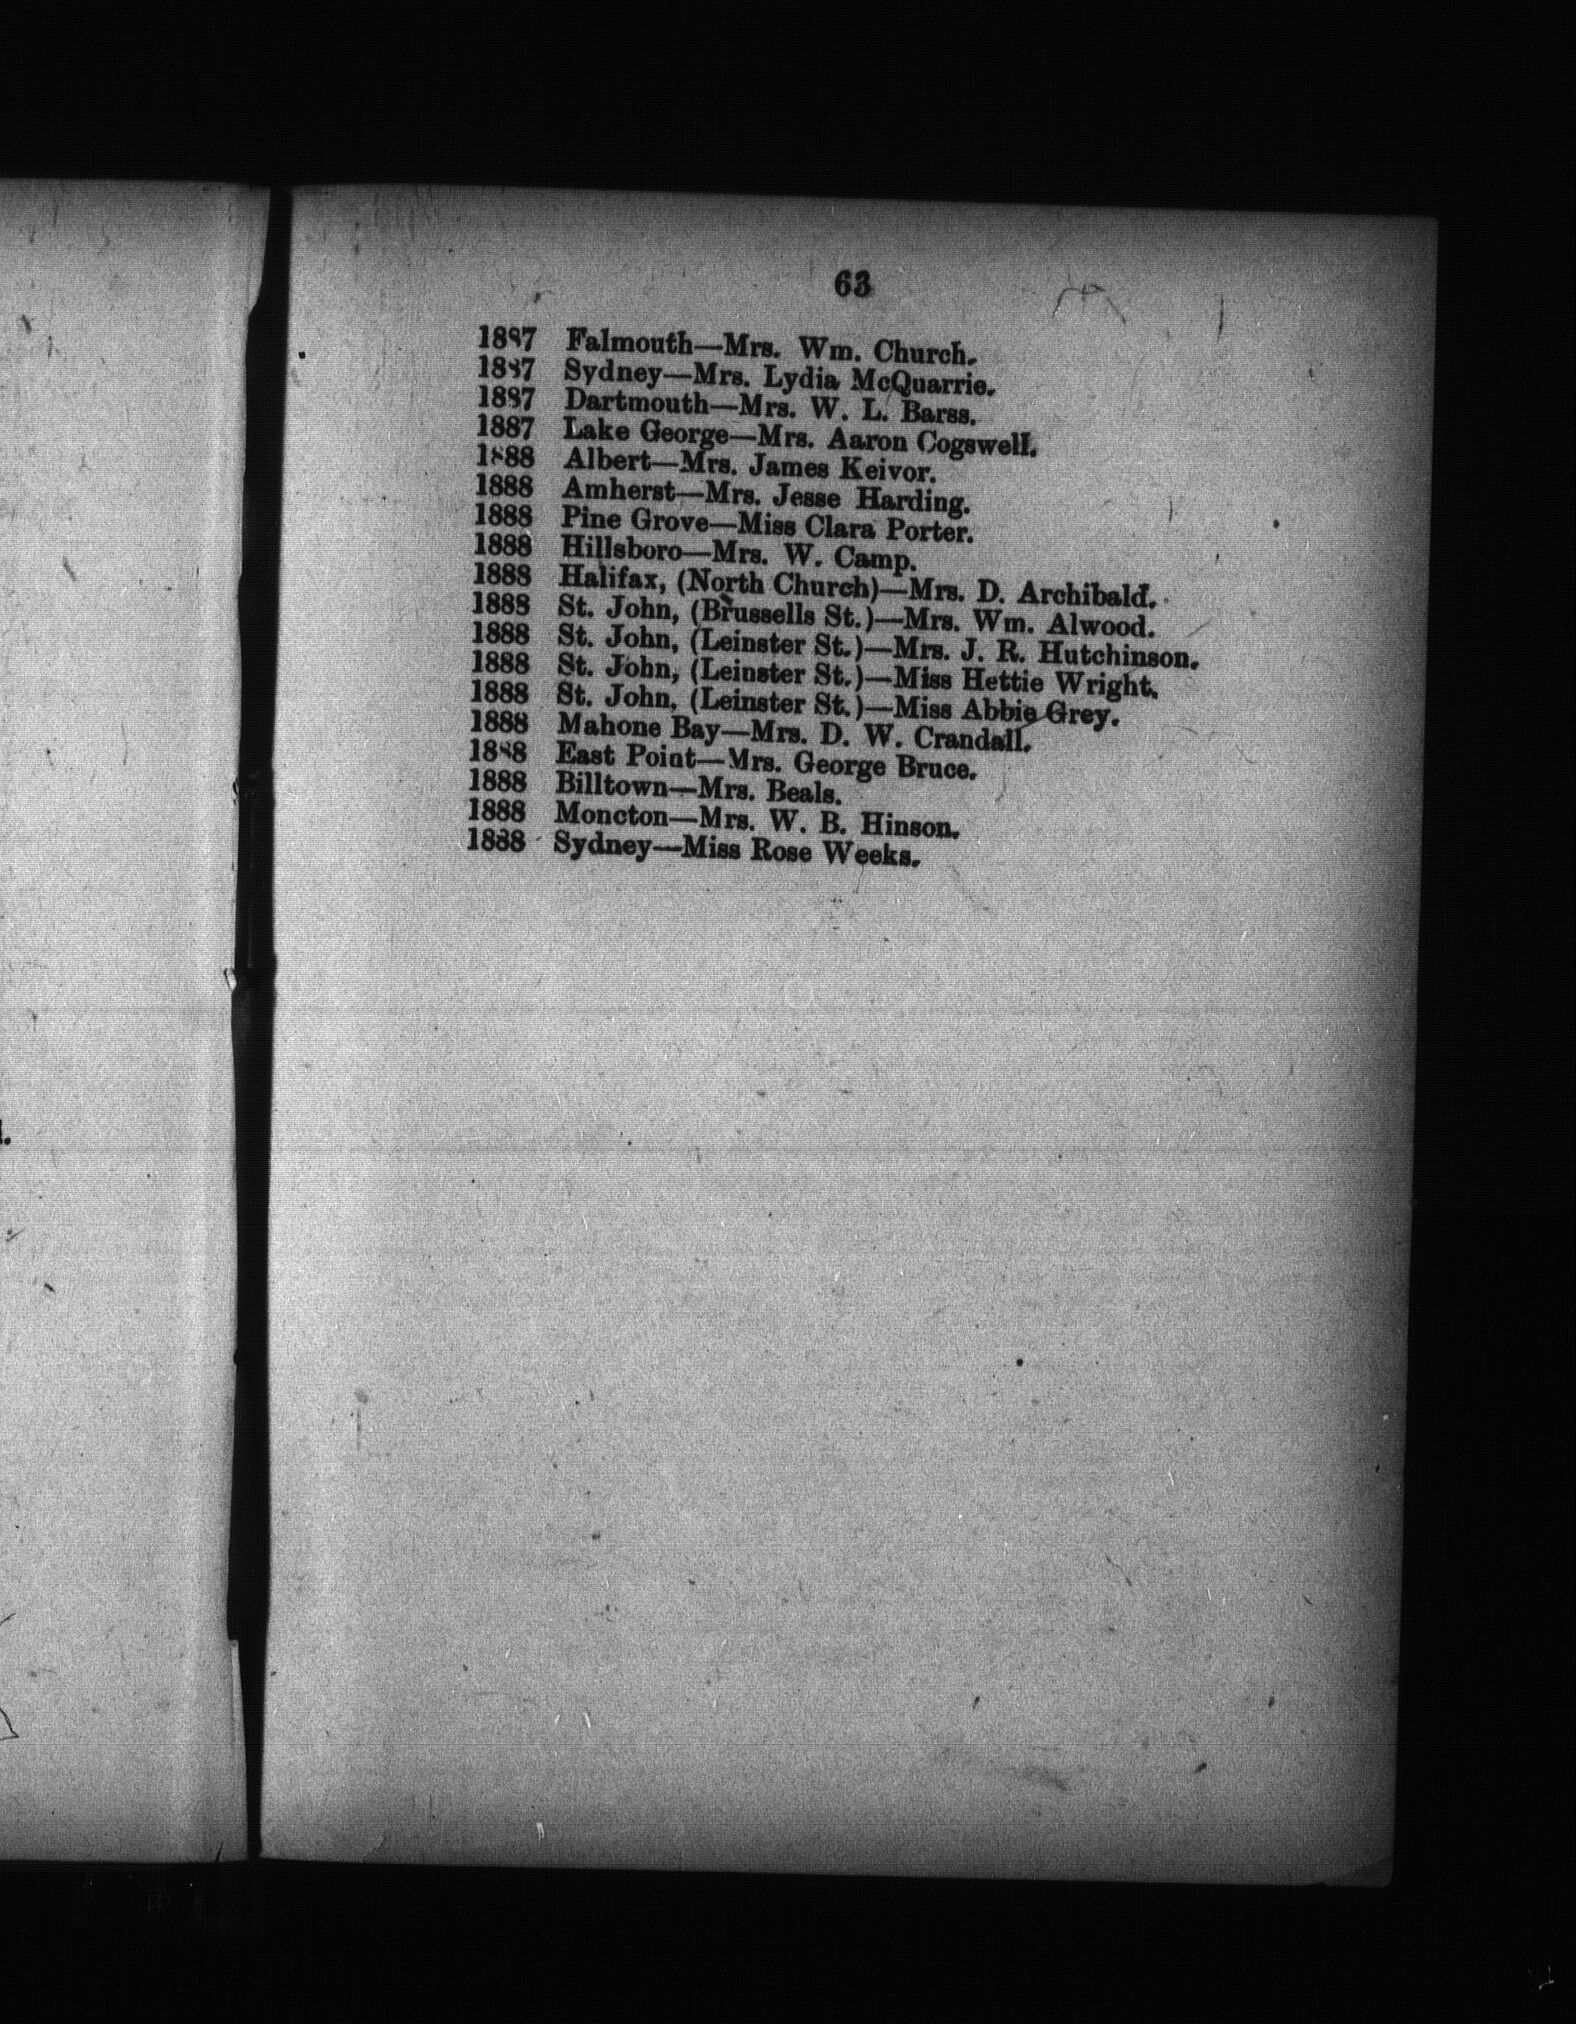 63
1887 Falmouth—Mrs. Wm. Church.
1887 Sydney—Mrs. Lydia McQuarrie.
1887 Dartmouth—Mrs. W. L. Barss.
1887 Lake George—Mrs. Aaron Cogswell.
1888 Albert—Mrs. James Keivor.
1888 Amherst—Mrs. Jesse Harding.
1888 Pine Grove—Miss Clara Porter.
1888 Hillsboro—Mrs. W. Camp.
1888 Halifax, (North Church)—Mrs. D. Archibald.
1888 St. John, (Brussells St.)—Mrs. Wm. Alwood.
1888 St. John, (Leinster St.)—Mrs. J. R. Hutchinson.
1888 St. John, (Leinster St.)—Miss Hettie Wright.
1888 St. John, (Leinster St.)—Miss Abbie Grey.
1888 Mahone Bay—Mrs. D. W. Crandall.
1888 East Point—Mrs. George Bruce.
1888 Billtown—Mrs. Beals.
1888 Moncton—Mrs. W. B. Hinson.
1888 Sydney—Miss Rose Weeks.